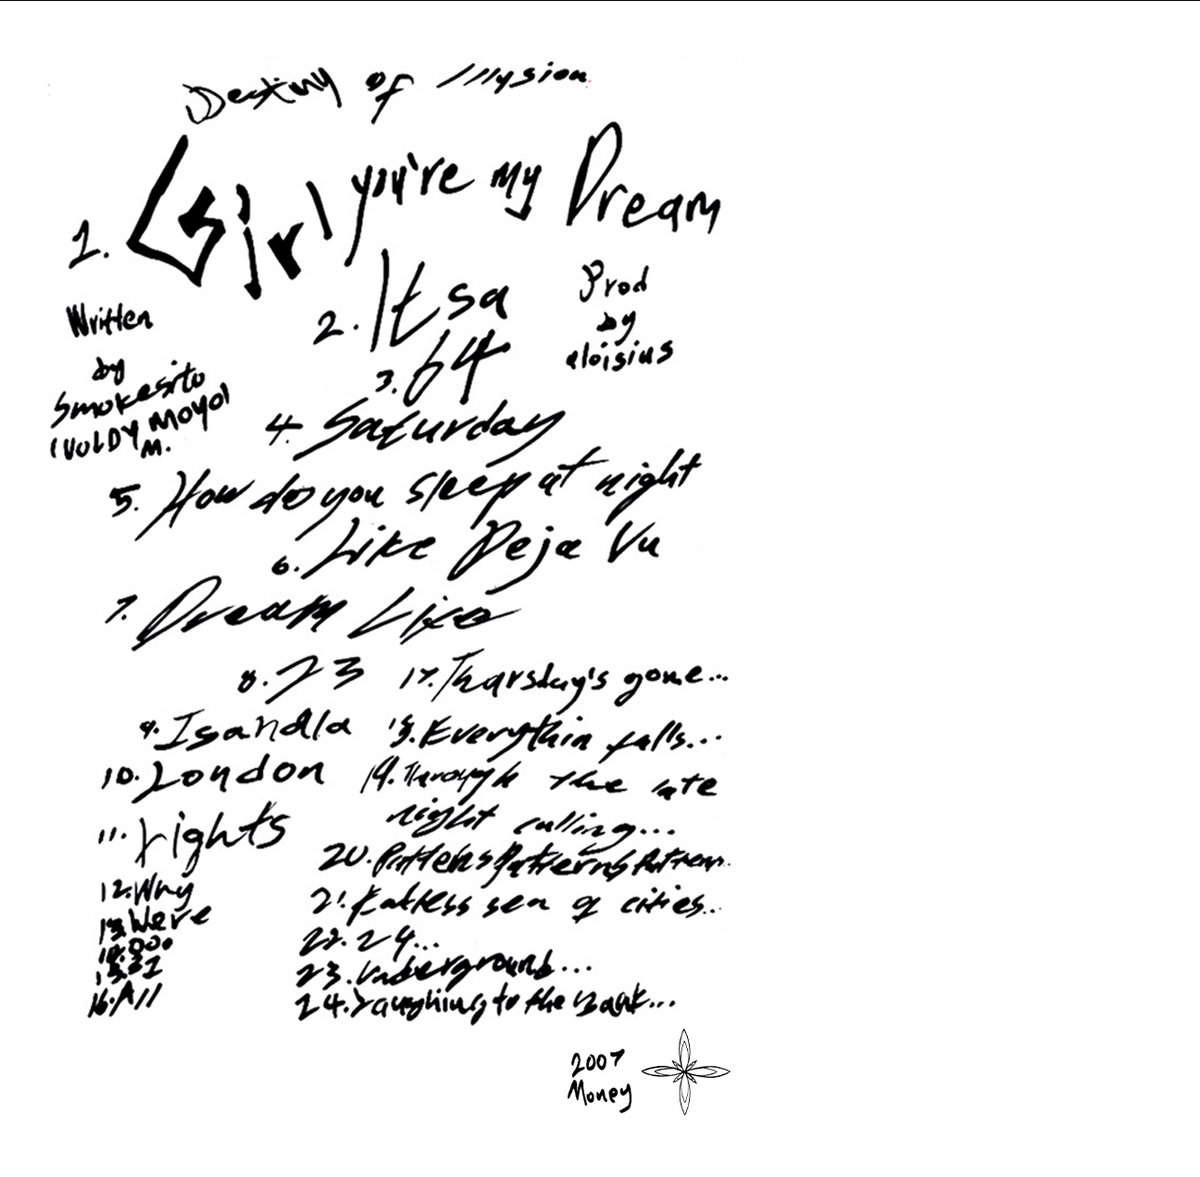 Destiny of Illusion
1. Girl you're my Dream
Written
by
Smokesito
(VOLDY MOYO)
M.
Prod
by
eloisius
2. Itsa
3. 64
4. Saturday
5. How do you sleep at night
6. Like Deja Vu
7. Dream Like
8. 23
9. Isandla
10. London
11. Lights
12. Why
13. Were
14. 000
15. 31
16. All
17. Tharsday's gone...
18. Everythin falls...
19. Through the late
night calling...
20. Patterns Patterns Pattern..
21. sea of cities...
22. 24...
23. Underground...
24. Laughing to the Bank...
2007
Money